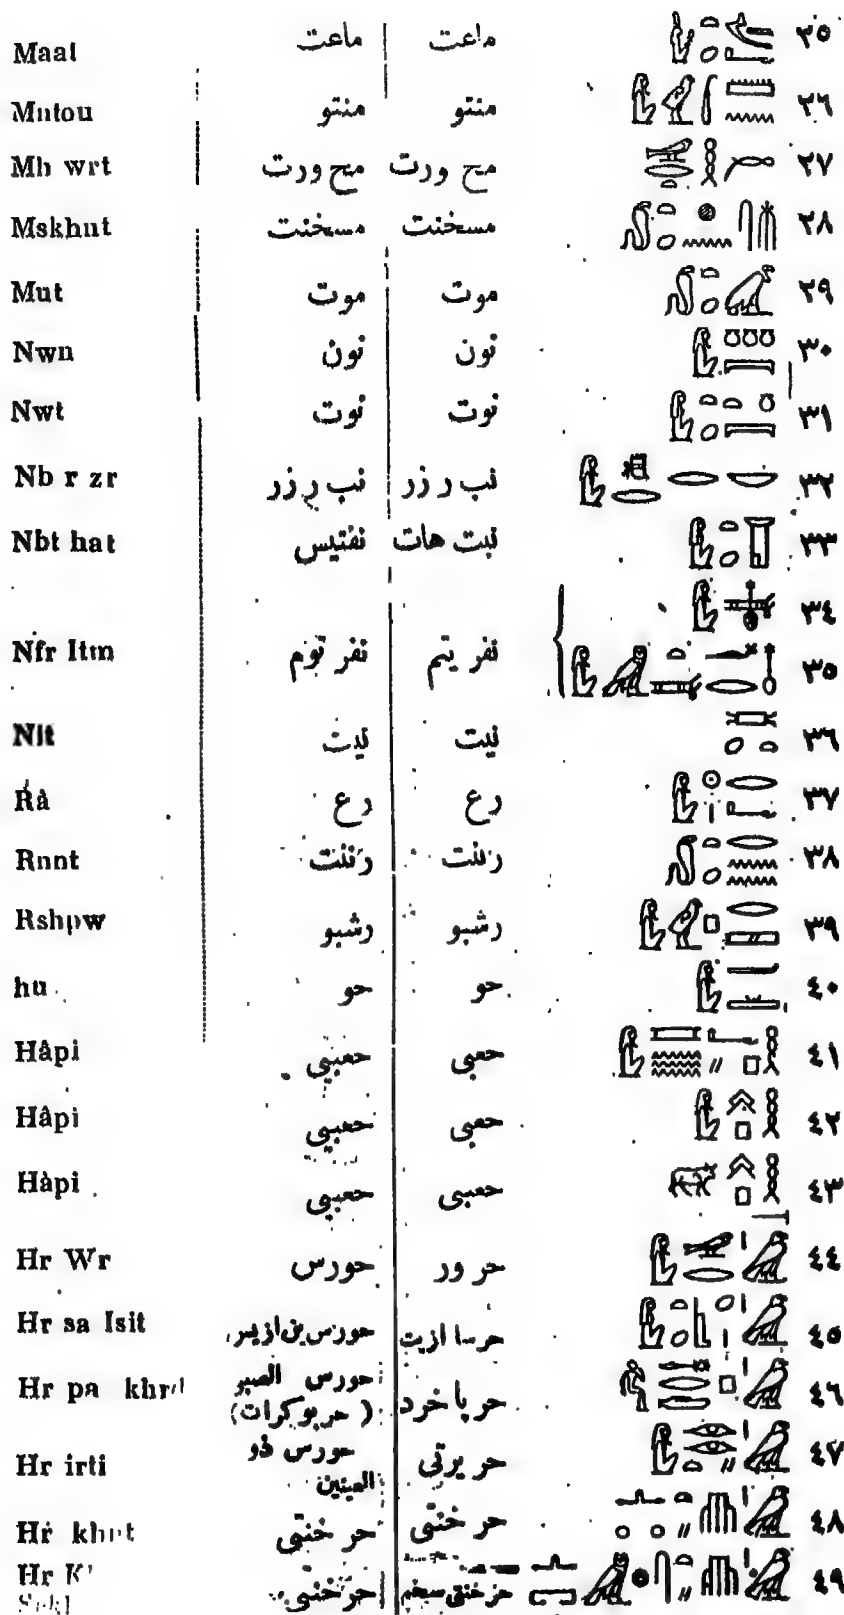 Maat ماعت ماعت ٢٥
Mntou منتو منتو ٢٦
Mh wrt مح ورت مح ورت ٢٧
Mskhnt مسخنت مسخنت ٢٨
Mut موت موت ٢٩
Nwn نون نون ٣٠
Nwt نوت نوت ٣١
Nb r zr نب ر زر نب ر زر ٣٢
Nbt hat نفتيس نبت هات ٣٣
٣٤
Nfr Itm نفر توم نفر يتم ٣٥
Nit نيت نيت ٣٦
Râ رع رع ٣٧
Rnnt رننت رننت ٣٨
Rshpw رشبو رشبو ٣٩
hu حو حو ٤٠
Hâpi حعبى حعبى ٤١
Hâpi حعبى حعبى ٤٢
Hàpi حعبى حعبى ٤٣
Hr Wr حورس حر ور ٤٤
Hr sa Isit حورس بن ازيس حر سا ازيت ٤٥
Hr pa حورس (حر بوكرات) حر با خرد ٤٦
Hr irti حورس ذو العينين حر يرتى ٤٧
Hr حر خنتى حر خنتى ٤٨
Hr حر خنتى حر خنتى سخم ٤٩